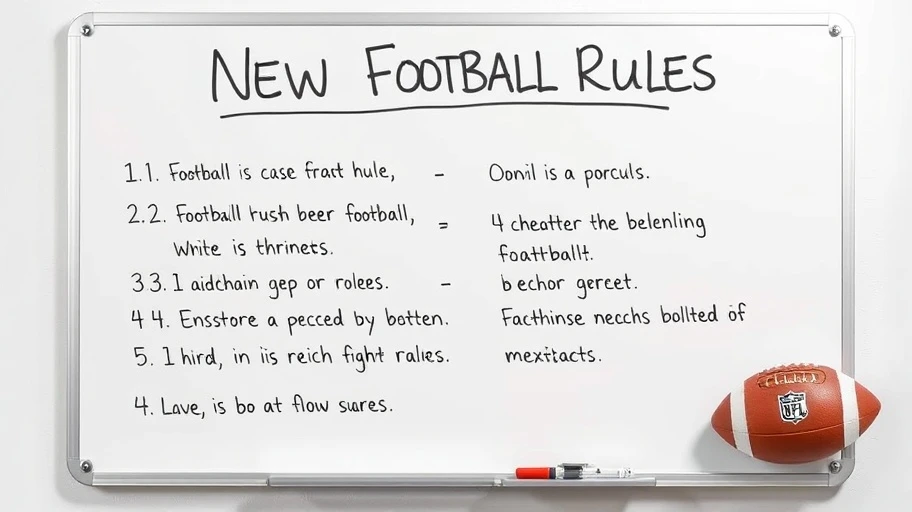 NEW FOOTBALL RULES
1.1. Football is case frart hule, - Oonil is a porculs.
2.2. Football rush beer football, = 4 cheatter the belenling
White is thrinets. foattballt.
33. 1 aidchain gep or rolees. - bechor gereet.
44. Ensstore a pecced by botten. Facthinse necchs bollted of
5. 1hird, in iis reich fight ralies. mexitacts.
4. Lave, is bo at flow suares.